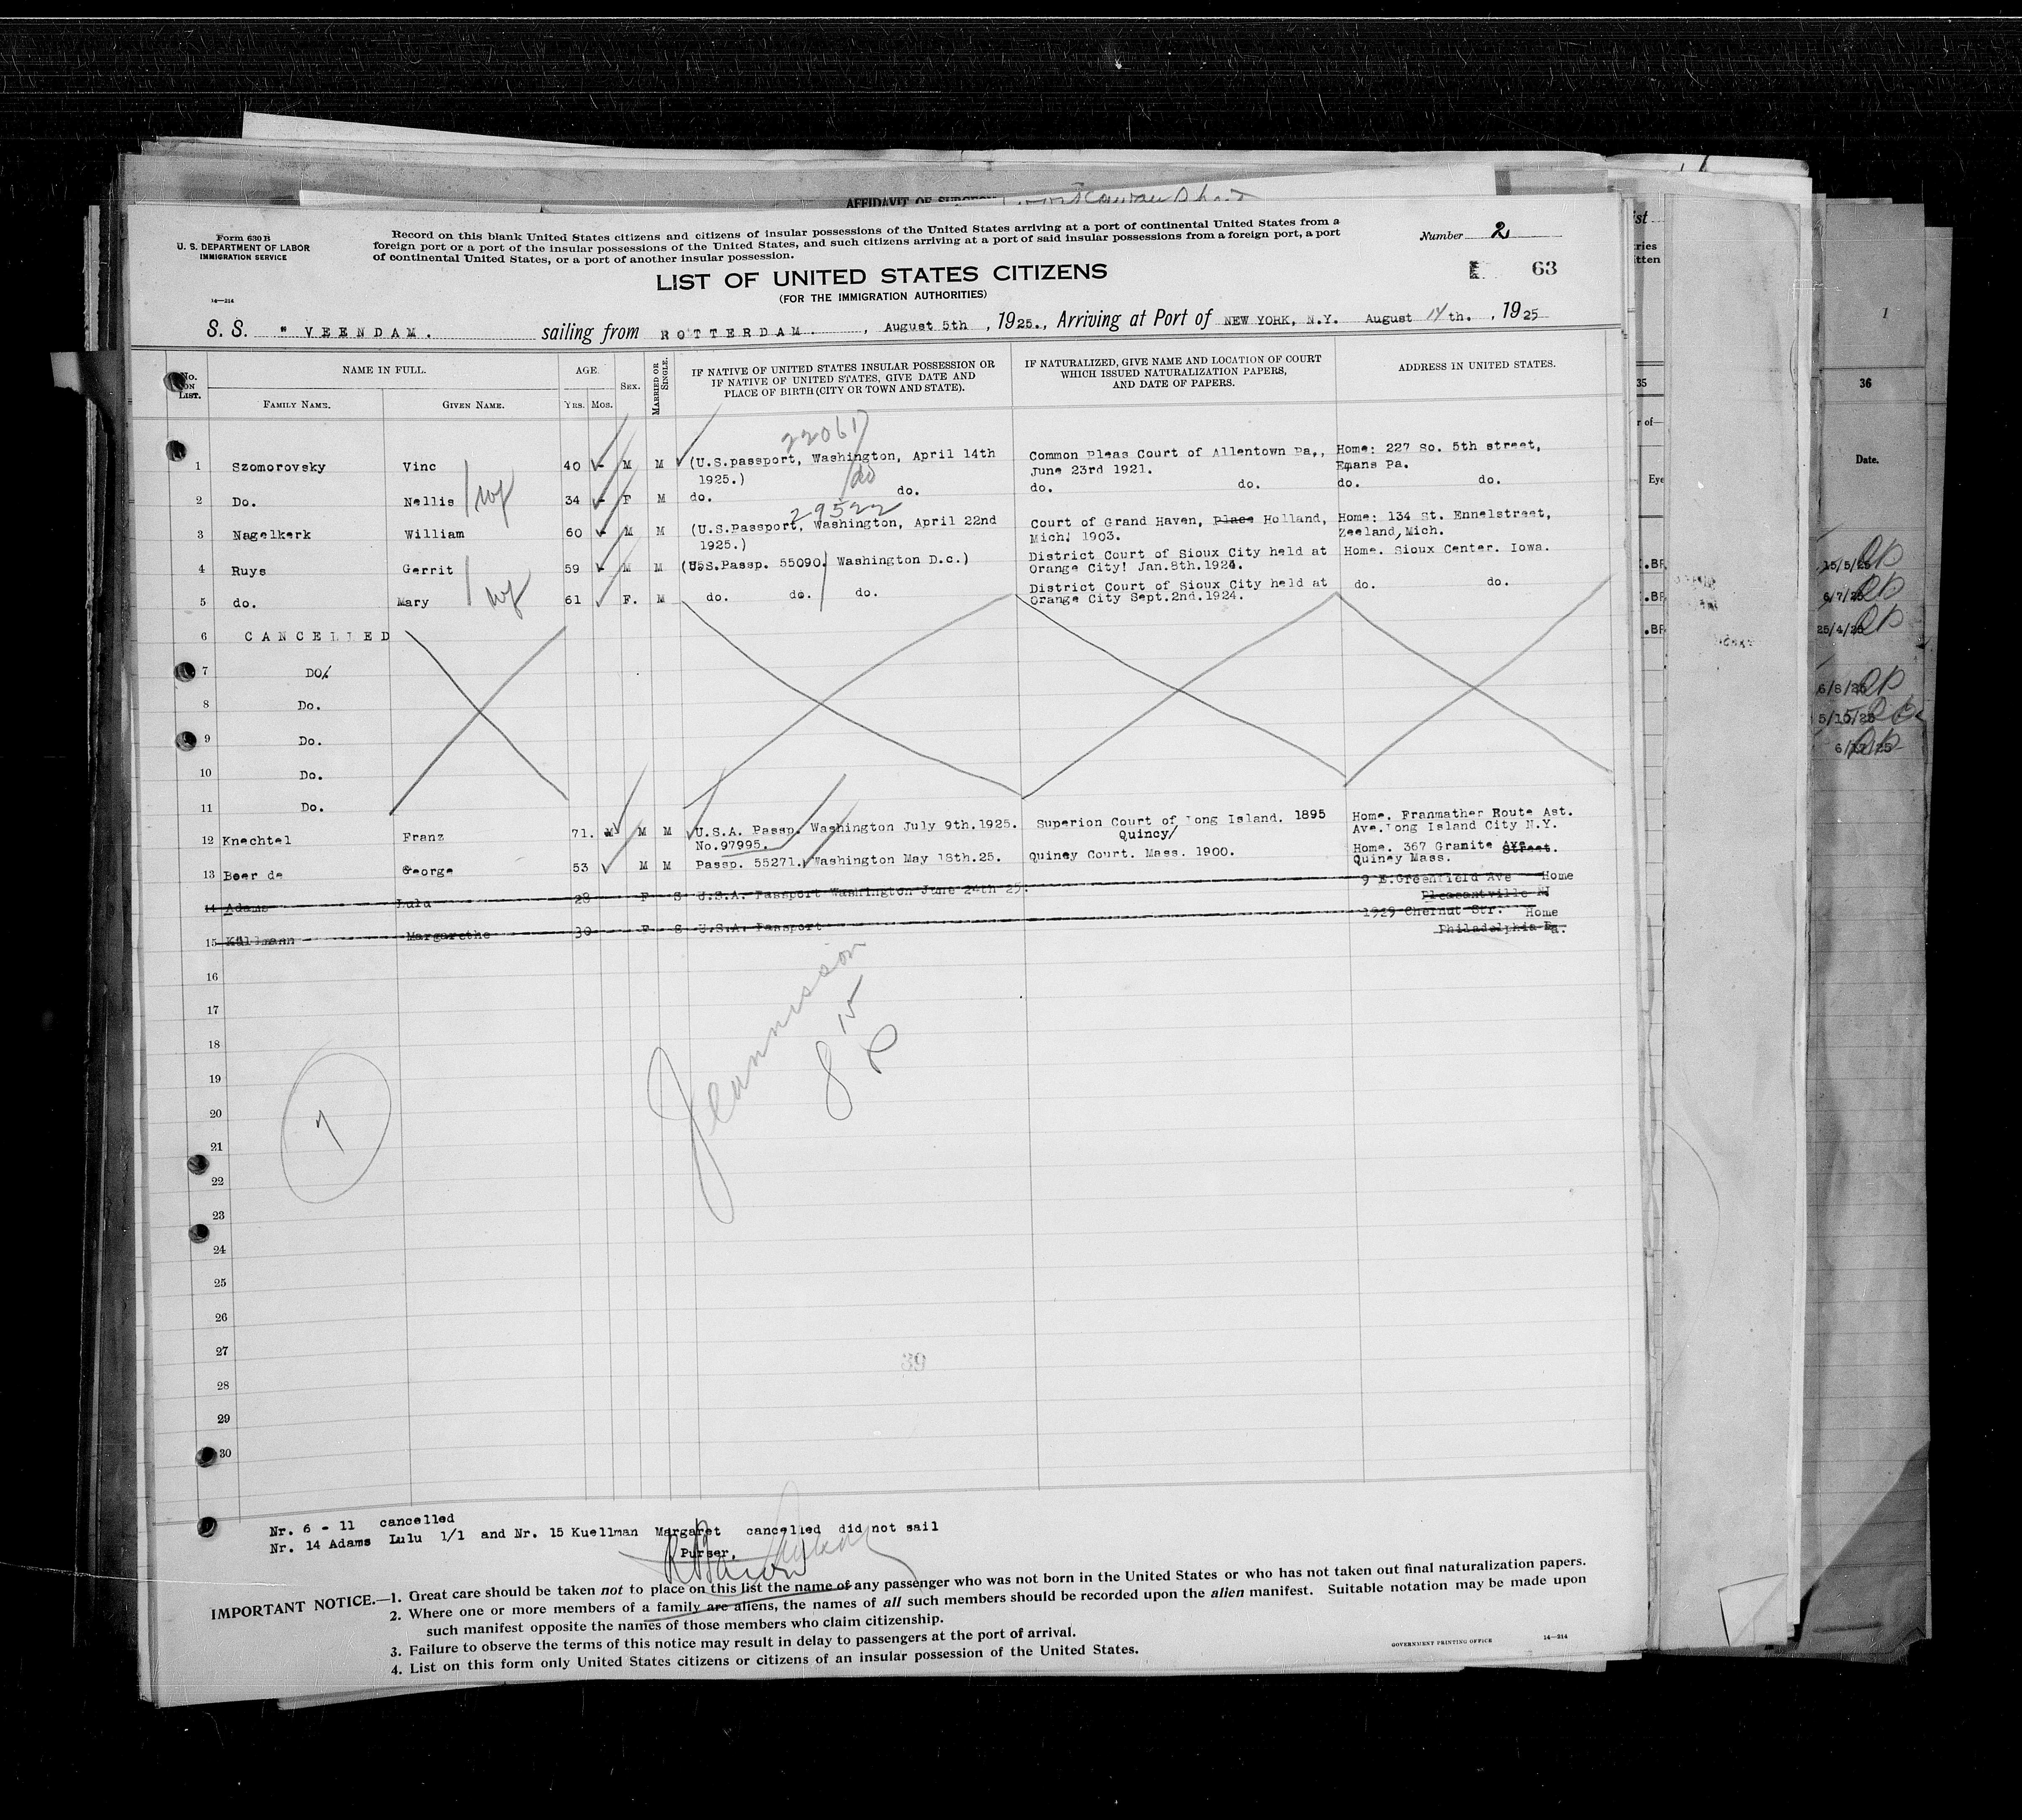 AFFIDAVIT OF SURGEON
Form 630 B
U. S. DEPARTMENT OF LABOR
IMMIGRATION SERVICE
14—214
Record on this blank United States citizens and citizens of insular possessions of the United States arriving at a port of continental United States from a
foreign port or a port of the insular possessions of the United States, and such citizens arriving at a port of said insular possessions from a foreign port, a port
of continental United States, or a port of another insular possession.
Number 2
63
LIST OF UNITED STATES CITIZENS
(FOR THE IMMIGRATION AUTHORITIES)
S. S. "VEENDAM. sailing from ROTTERDAM. , August 5th , 1925., Arriving at Port of NEW YORK, N.Y. August 14th. , 1925
No. ON LIST. NAME IN FULL. AGE. SEX. MARRIED OR SINGLE. IF NATIVE OF UNITED STATES INSULAR POSSESSION OR IF NATIVE OF UNITED STATES, GIVE DATE AND PLACE OF BIRTH (CITY OR TOWN AND STATE). IF NATURALIZED, GIVE NAME AND LOCATION OF COURT WHICH ISSUED NATURALIZATION PAPERS, AND DATE OF PAPERS. ADDRESS IN UNITED STATES.
FAMILY NAME. GIVEN NAME. YRS. MOS.
22061
1 Szomorovsky Vinc 40 - M M (U.S.passport, Washington, April 14th Common Pleas Court of Allentown Pa,, Home: 227 So. 5th street,
1925.) do June 23rd 1921. Emans Pa.
2 Do. Nellis wf 34 - F M do. do. do. do. do. do.
29522
3 Nagelkerk William 60 - M M (U.S.Passport, Washington, April 22nd Court of Grand Haven, Place Holland, Home: 134 St. Ennelstreet,
1925.) Mich! 1903. Zeeland, Mich.
4 Ruys Gerrit 59 - M M (U.S.Passp. 55090. Washington D.c.) District Court of Sioux City held at Home. Sioux Center. Iowa.
Orange City! Jan.8th.1924.
5 do. Mary wf 61 F. M do. do. do. District Court of Sioux City held at do. do.
Orange City Sept.2nd.1924.
6 CANCELLED
7 DO.
8 Do.
9 Do.
10 Do.
11 Do.
12 Knechtel Franz 71. M M M U.S.A. Passp. Washington July 9th.1925. Superion Court of Long Island. 1895 Home. Franmather Route Ast.
No.97995. Quincy/ Ave.Long Island City N.Y.
13 Boer de George 53 M M Passp. 55271. Washington May 18th.25. Quincy Court. Mass. 1900. Home. 367 Granite Ave Street.
Quincy Mass.
14 Adams Lulu 28 F S U.S.A. Passport Washington June 24th 25. 9 E.Greenfield Ave Home
Pleasantville NJ
15 Küllmann Margarethe 30 F S U.S.A. Passport 1929 Chernut Str. Home
Philadelphia Pa.
16
17
18
19
20
21
22
23
24
25
26
27
28
29
30
Jeannisson
8 15
7
39
Nr. 6 - 11 cancelled
Nr. 14 Adams Lulu 1/1 and Nr. 15 Kuellman Margaret cancelled did not sail
Purser,
IMPORTANT NOTICE.—1. Great care should be taken not to place on this list the name of any passenger who was not born in the United States or who has not taken out final naturalization papers.
2. Where one or more members of a family are aliens, the names of all such members should be recorded upon the alien manifest. Suitable notation may be made upon
such manifest opposite the names of those members who claim citizenship.
3. Failure to observe the terms of this notice may result in delay to passengers at the port of arrival.
4. List on this form only United States citizens or citizens of an insular possession of the United States.
GOVERNMENT PRINTING OFFICE 14—214
35
1
36
Date.
15/5/25
6/7/25
25/4/25
6/8/25
5/15/25